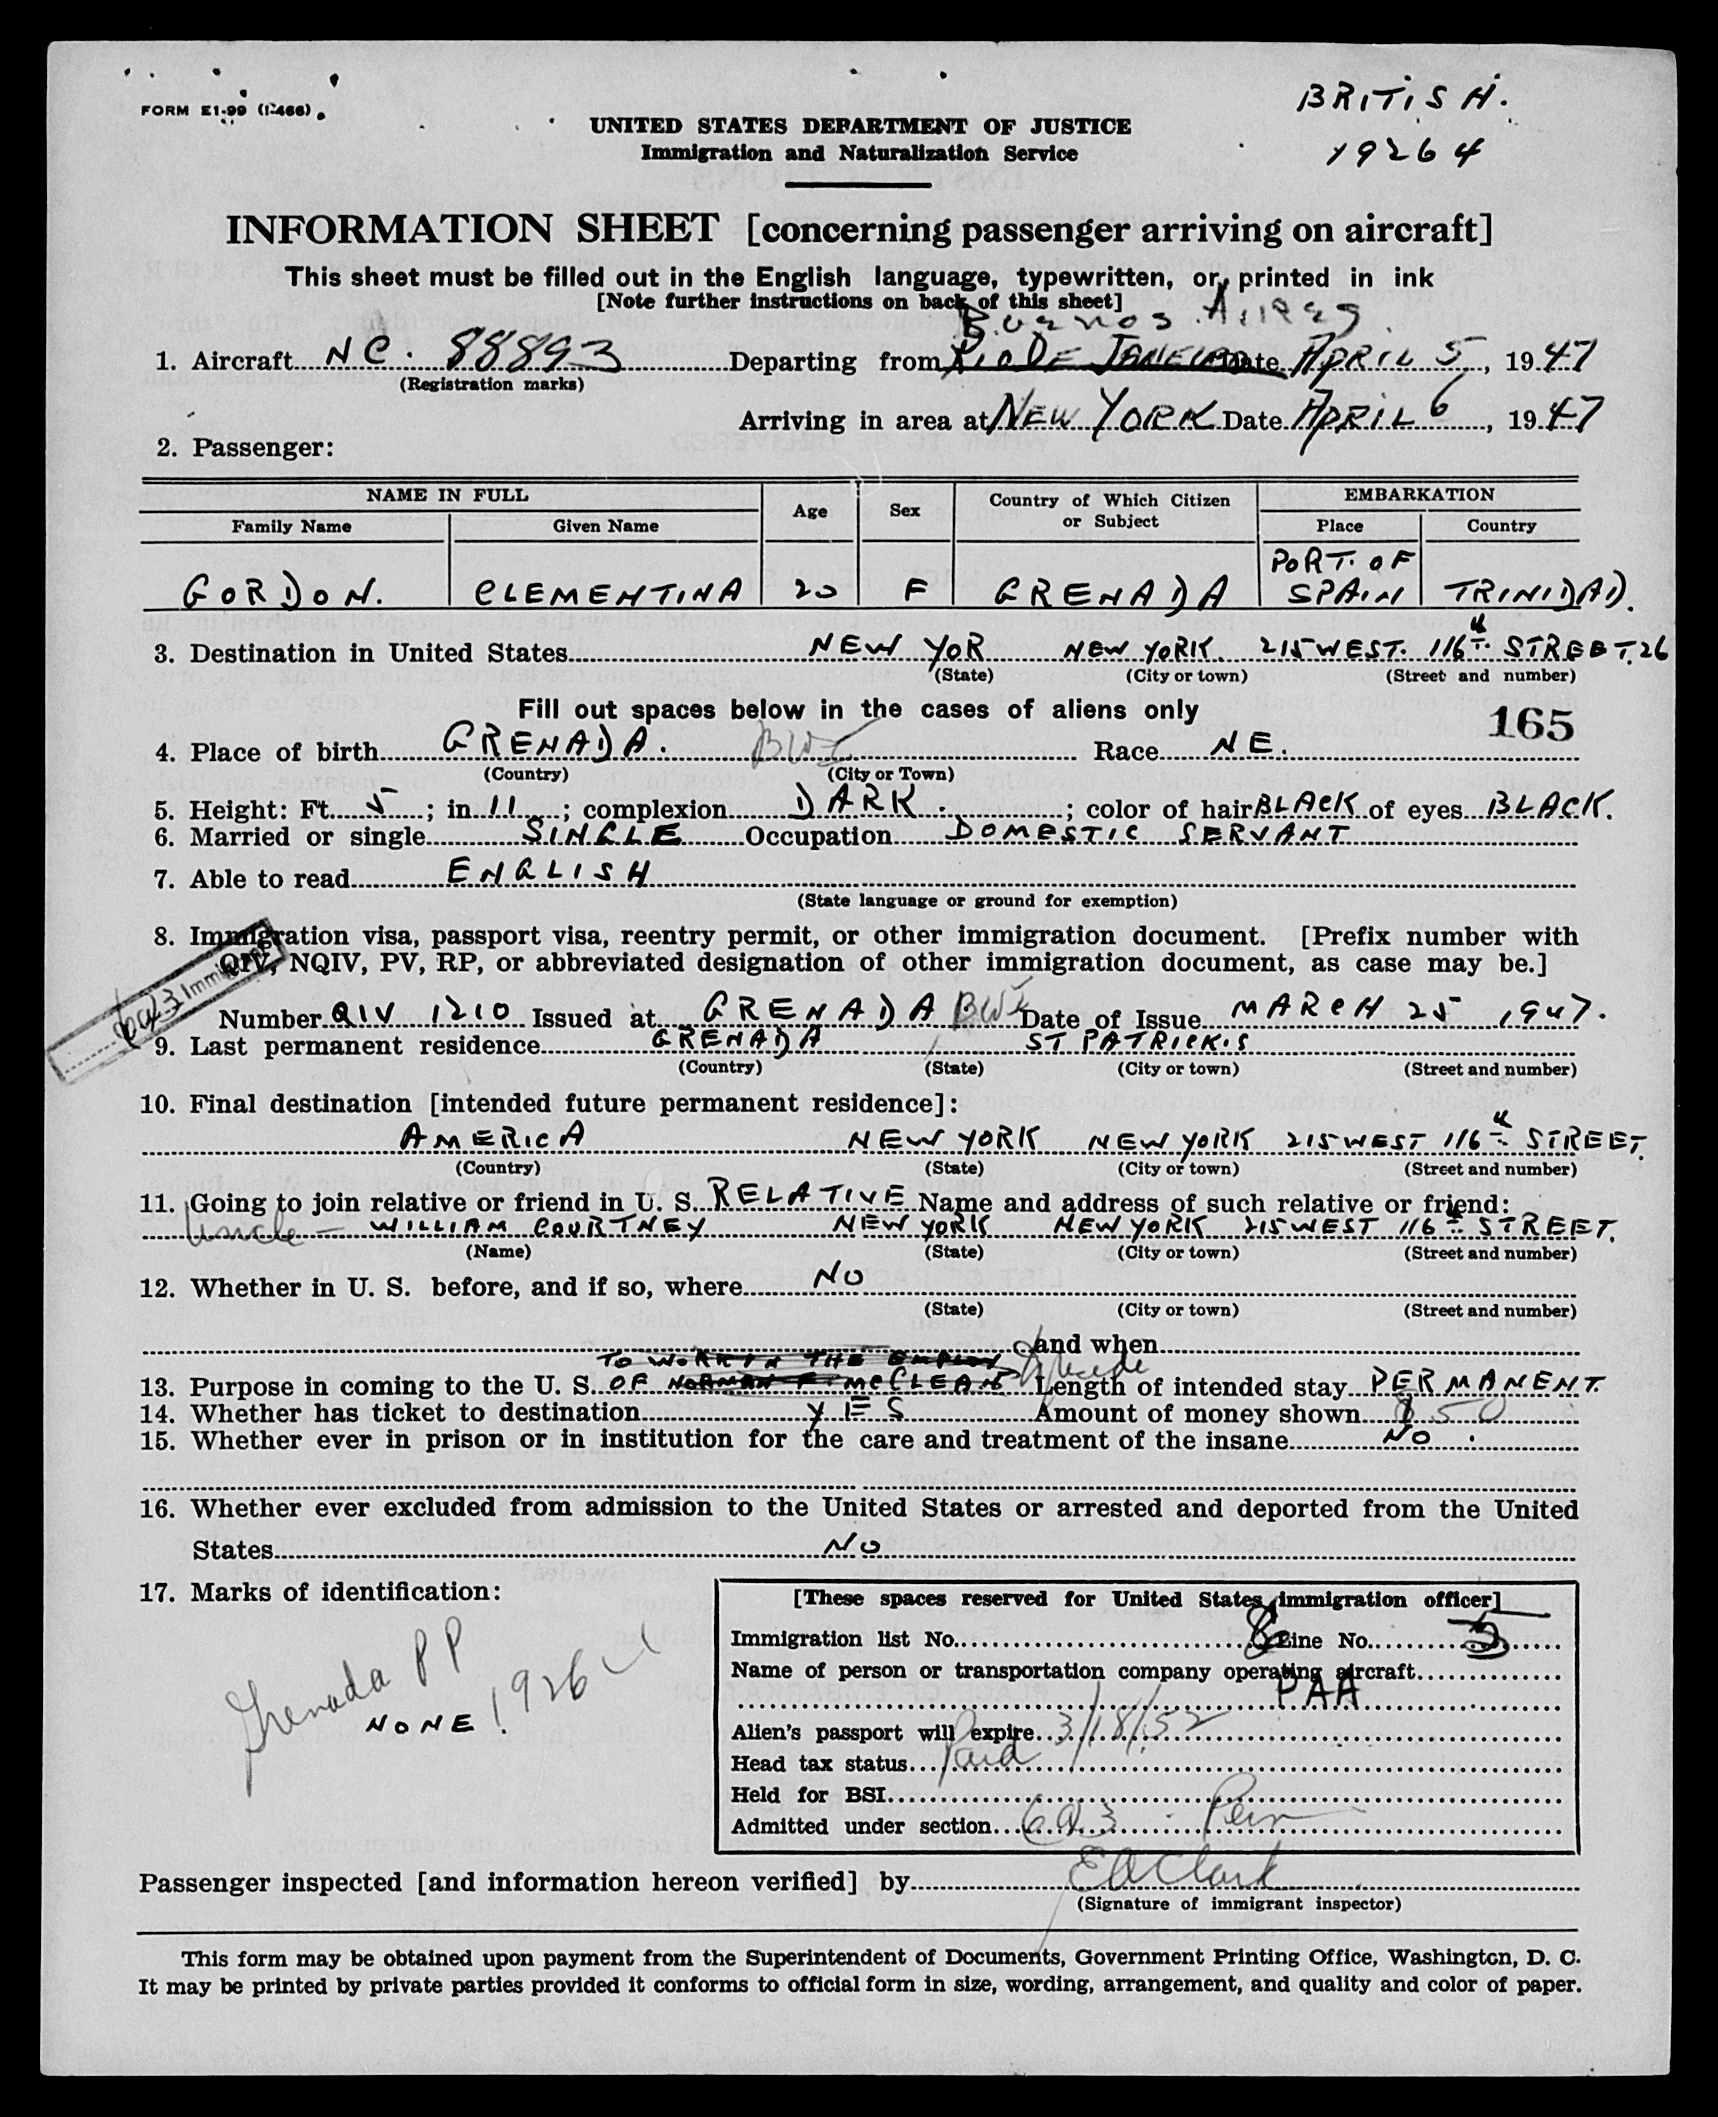 FORM E1-99 (I-466)
BRITISH.
19264
UNITED STATES DEPARTMENT OF JUSTICE
Immigration and Naturalization Service
INFORMATION SHEET [concerning passenger arriving on aircraft]
This sheet must be filled out in the English language, typewritten, or printed in ink
[Note further instructions on back of this sheet]
Buenos Aires
1. Aircraft NC. 88893 Departing from Rio De Janeiro Date APRIL 5, 1947
(Registration marks)
Arriving in area at NEW YORK Date APRIL 6, 1947
2. Passenger:
NAME IN FULL Age Sex Country of Which Citizen or Subject EMBARKATION
Family Name Given Name Place Country
GORDON. CLEMENTINA 20 F GRENADA PORT. OF SPAIN TRINIDAD.
3. Destination in United States NEW YOR NEW YORK 215 WEST. 116th STREET. 26
(State) (City or town) (Street and number)
Fill out spaces below in the cases of aliens only
165
4. Place of birth GRENADA. BWI Race NE.
(Country) (City or Town)
5. Height: Ft. 5; in 11; complexion DARK.; color of hair BLACK of eyes BLACK.
6. Married or single SINGLE Occupation DOMESTIC SERVANT
7. Able to read ENGLISH
(State language or ground for exemption)
8. Immigration visa, passport visa, reentry permit, or other immigration document. [Prefix number with
QIV, NQIV, PV, RP, or abbreviated designation of other immigration document, as case may be.]
6a3 Immigrant
Number QIV 1210 Issued at GRENADA BWI Date of Issue MARCH 25 1947.
9. Last permanent residence GRENADA ST PATRICK'S
(Country) (State) (City or town) (Street and number)
10. Final destination [intended future permanent residence]:
AMERICA NEW YORK NEW YORK 215 WEST 116th STREET.
(Country) (State) (City or town) (Street and number)
11. Going to join relative or friend in U. S. RELATIVE Name and address of such relative or friend:
Uncle - WILLIAM COURTNEY NEW YORK NEW YORK 215 WEST 116th STREET.
(Name) (State) (City or town) (Street and number)
12. Whether in U. S. before, and if so, where NO
(State) (City or town) (Street and number)
and when
TO WORK IN THE EMPLOY
13. Purpose in coming to the U. S. OF NORMAN F. McCLEAN Length of intended stay PERMANENT.
14. Whether has ticket to destination YES Amount of money shown $50
15. Whether ever in prison or in institution for the care and treatment of the insane NO.
16. Whether ever excluded from admission to the United States or arrested and deported from the United
States NO
17. Marks of identification:
Grenada PP 19264
NONE
[These spaces reserved for United States immigration officer]
Immigration list No. 8 Line No. 3
Name of person or transportation company operating aircraft
PAA
Alien's passport will expire 3/18/52
Head tax status Paid
Held for BSI
Admitted under section 6a3 - Perm
Passenger inspected [and information hereon verified] by EA Clark
(Signature of immigrant inspector)
This form may be obtained upon payment from the Superintendent of Documents, Government Printing Office, Washington, D. C.
It may be printed by private parties provided it conforms to official form in size, wording, arrangement, and quality and color of paper.